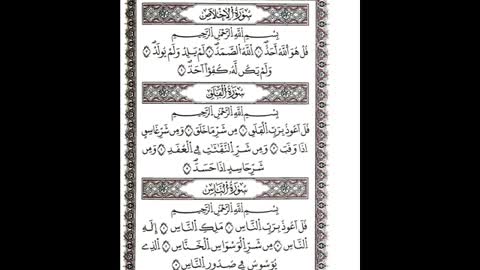 سورة الإخلاص
بسم الله الرحمن الرحيم
قل هو الله أحد ۝ الله الصمد ۝ لم يلد ولم يولد ۝
ولم يكن له كفوا أحد ۝
سورة الفلق
بسم الله الرحمن الرحيم
قل أعوذ برب الفلق ۝ من شر ما خلق ۝ ومن شر غاسق
إذا وقب ۝ ومن شر النفثت في العقد ۝ ومن
شر حاسد إذا حسد ۝
سورة الناس
بسم الله الرحمن الرحيم
قل أعوذ برب الناس ۝ ملك الناس ۝ إله
الناس ۝ من شر الوسواس الخناس ۝ الذي
يوسوس في صدور الناس ۝